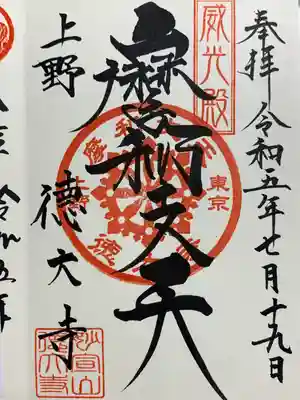 奉拝 令和五年七月十九日
威光殿
摩利支天
東京
上野
徳大寺
妙宣山
徳大寺